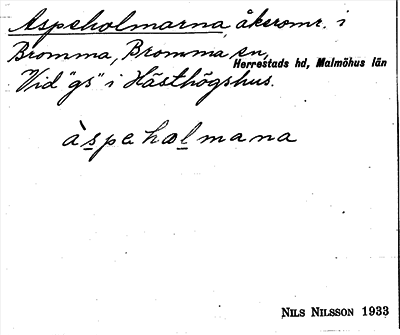 Aspeholmarna, åkeromr. i
Bromma, Bromma sn,
Herrestads hd, Malmöhus län
Vid "gs" i Hästhögshus.
àspehalmana
NILS NILSSON 1933